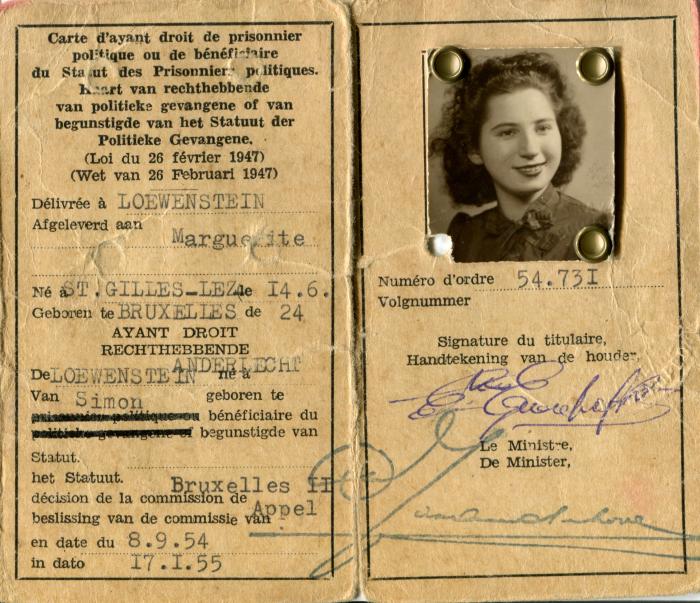 Carte d'ayant droit de prisonnier
politique ou de bénéficiaire
du Statut des Prisonniers politiques.
Kaart van rechthebbende
van politieke gevangene of van
begunstigde van het Statuut der
Politieke Gevangene.
(Loi du 26 février 1947)
(Wet van 26 Februari 1947)
Délivrée à LOEWENSTEIN
Afgeleverd aan
Marguerite
Né à ST.GILLES-LEZ le 14.6.
Geboren te BRUXELLES de 24
AYANT DROIT
RECHTHEBBENDE
ANDERLECHT
De LOEWENSTEIN né à
Van Simon geboren te
prisonnier politique ou bénéficiaire du
politieke gevangene of begunstigde van
Statut.
het Statuut.
Bruxelles II
décision de la commission de
Appel
beslissing van de commissie van
en date du 8.9.54
in dato 17.I.55
Numéro d'ordre 54.73I
Volgnummer
Signature du titulaire,
Handtekening van de houder,
Le Ministre,
De Minister,